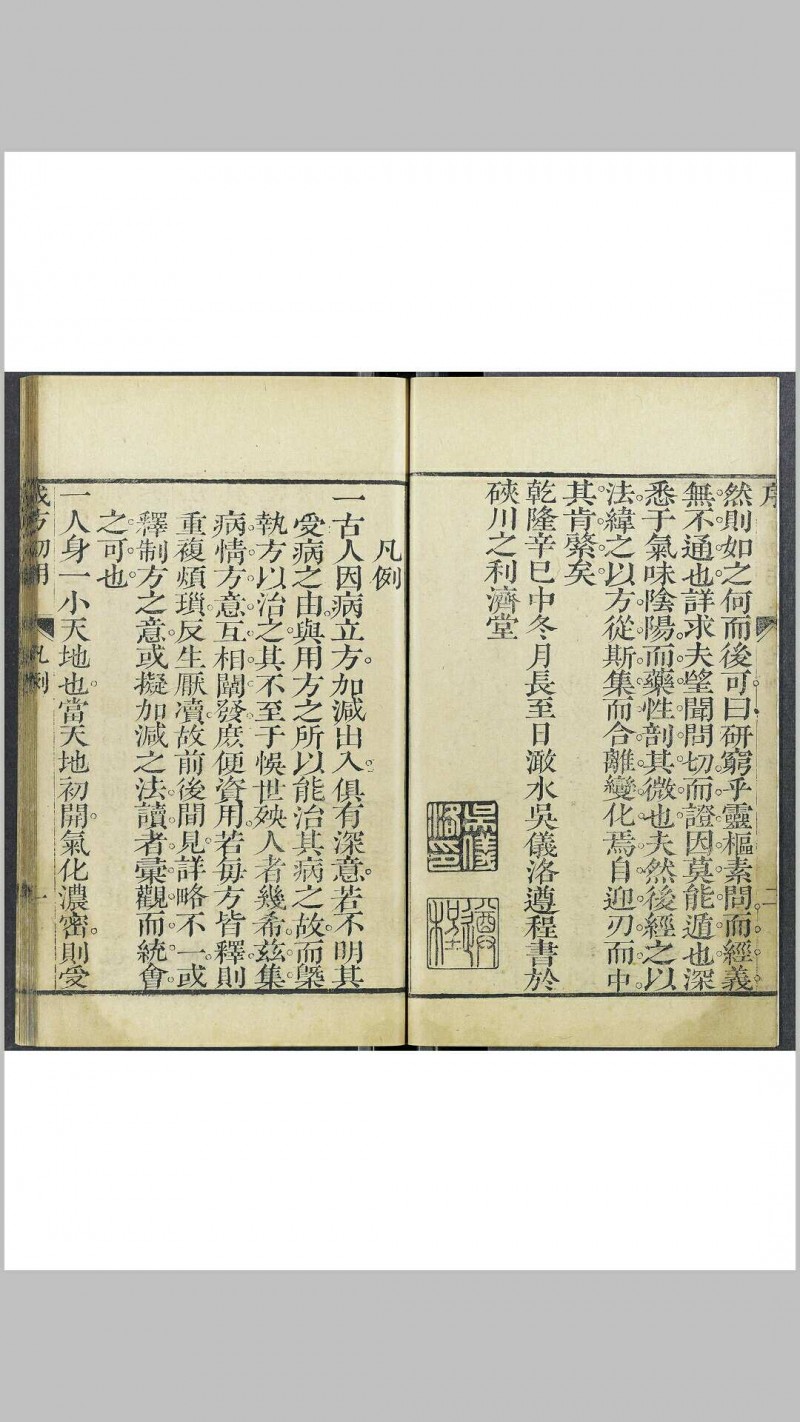 序
二
然則如之何而後可曰研窮乎靈樞素問而經義
無不通也詳求夫望聞問切而證因莫能遁也深
悉于氣味陰陽而藥性剖其微也夫然後經之以
法緯之以方從斯集而合離變化焉自迎刃而中
其肯綮矣
乾隆辛巳中冬月長至日澉水吳儀洛遵程書於
硤川之利濟堂
吳儀洛印
遵程
凡例
一古人因病立方加減出入俱有深意若不明其
愛病之由與用方之所以能治其病之故而槩
執方以治之其不至于悞世殃人者幾希茲集
病情方意互相闡發庶便資用若每方皆釋則
重複煩瑣反生厭凟故前後間見詳略不一或
釋制方之意或擬加減之法讀者彚觀而統會
之可也
一人身一小天地也當天地初開氣化濃密則受
成方切用
凡例
一